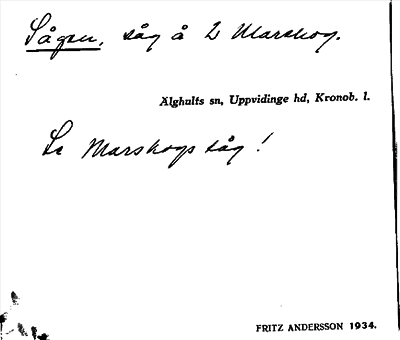 Sågen, såg å 2 Marskog.
Älghults sn, Uppvidinge hd, Kronob. l.
Se Marskogs såg!
FRITZ ANDERSSON 1934.